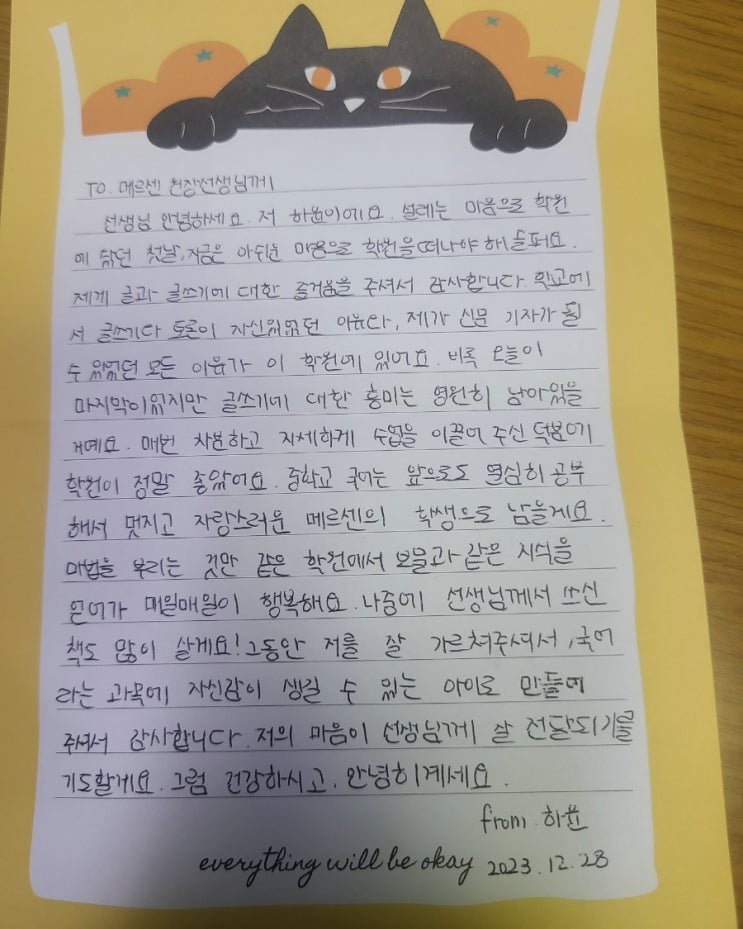 TO. 메르센 원장선생님께
선생님 안녕하세요. 저 하윤이에요. 설레는 마음으로 학원
에 왔던 첫날, 지금은 아쉬운 마음으로 학원을 떠나야 해 슬퍼요.
제게 글과 글쓰기에 대한 즐거움을 주셔서 감사합니다. 학교에
서 글쓰기다 토론이 자신있었던 이유다, 제가 신문 기자가 될
수 있었던 모든 이유가 이 학원에 있어요. 비록 오늘이
마지막이었지만 글쓰기에 대한 흥미는 영원히 남아있을
거예요. 매번 차분하고 자세하게 수업을 이끌어 주신 덕분에
학원이 정말 좋았어요. 중학교 국어는 앞으로도 열심히 공부
해서 멋지고 자랑스러운 메르센의 학생으로 남을게요.
마법을 부리는 것만 같은 학원에서 보물과 같은 지식을
얻어가 매일매일이 행복해요. 나중에 선생님께서 쓰신
책도 많이 살게요! 그동안 저를 잘 가르쳐주셔서, 국어
라는 과목에 자신감이 생길 수 있는 아이로 만들어
주셔서 감사합니다. 저의 마음이 선생님께 잘 전달되기를
기도할게요. 그럼 건강하시고, 안녕히계세요.
from. 하윤
everything will be okay 2023. 12. 28